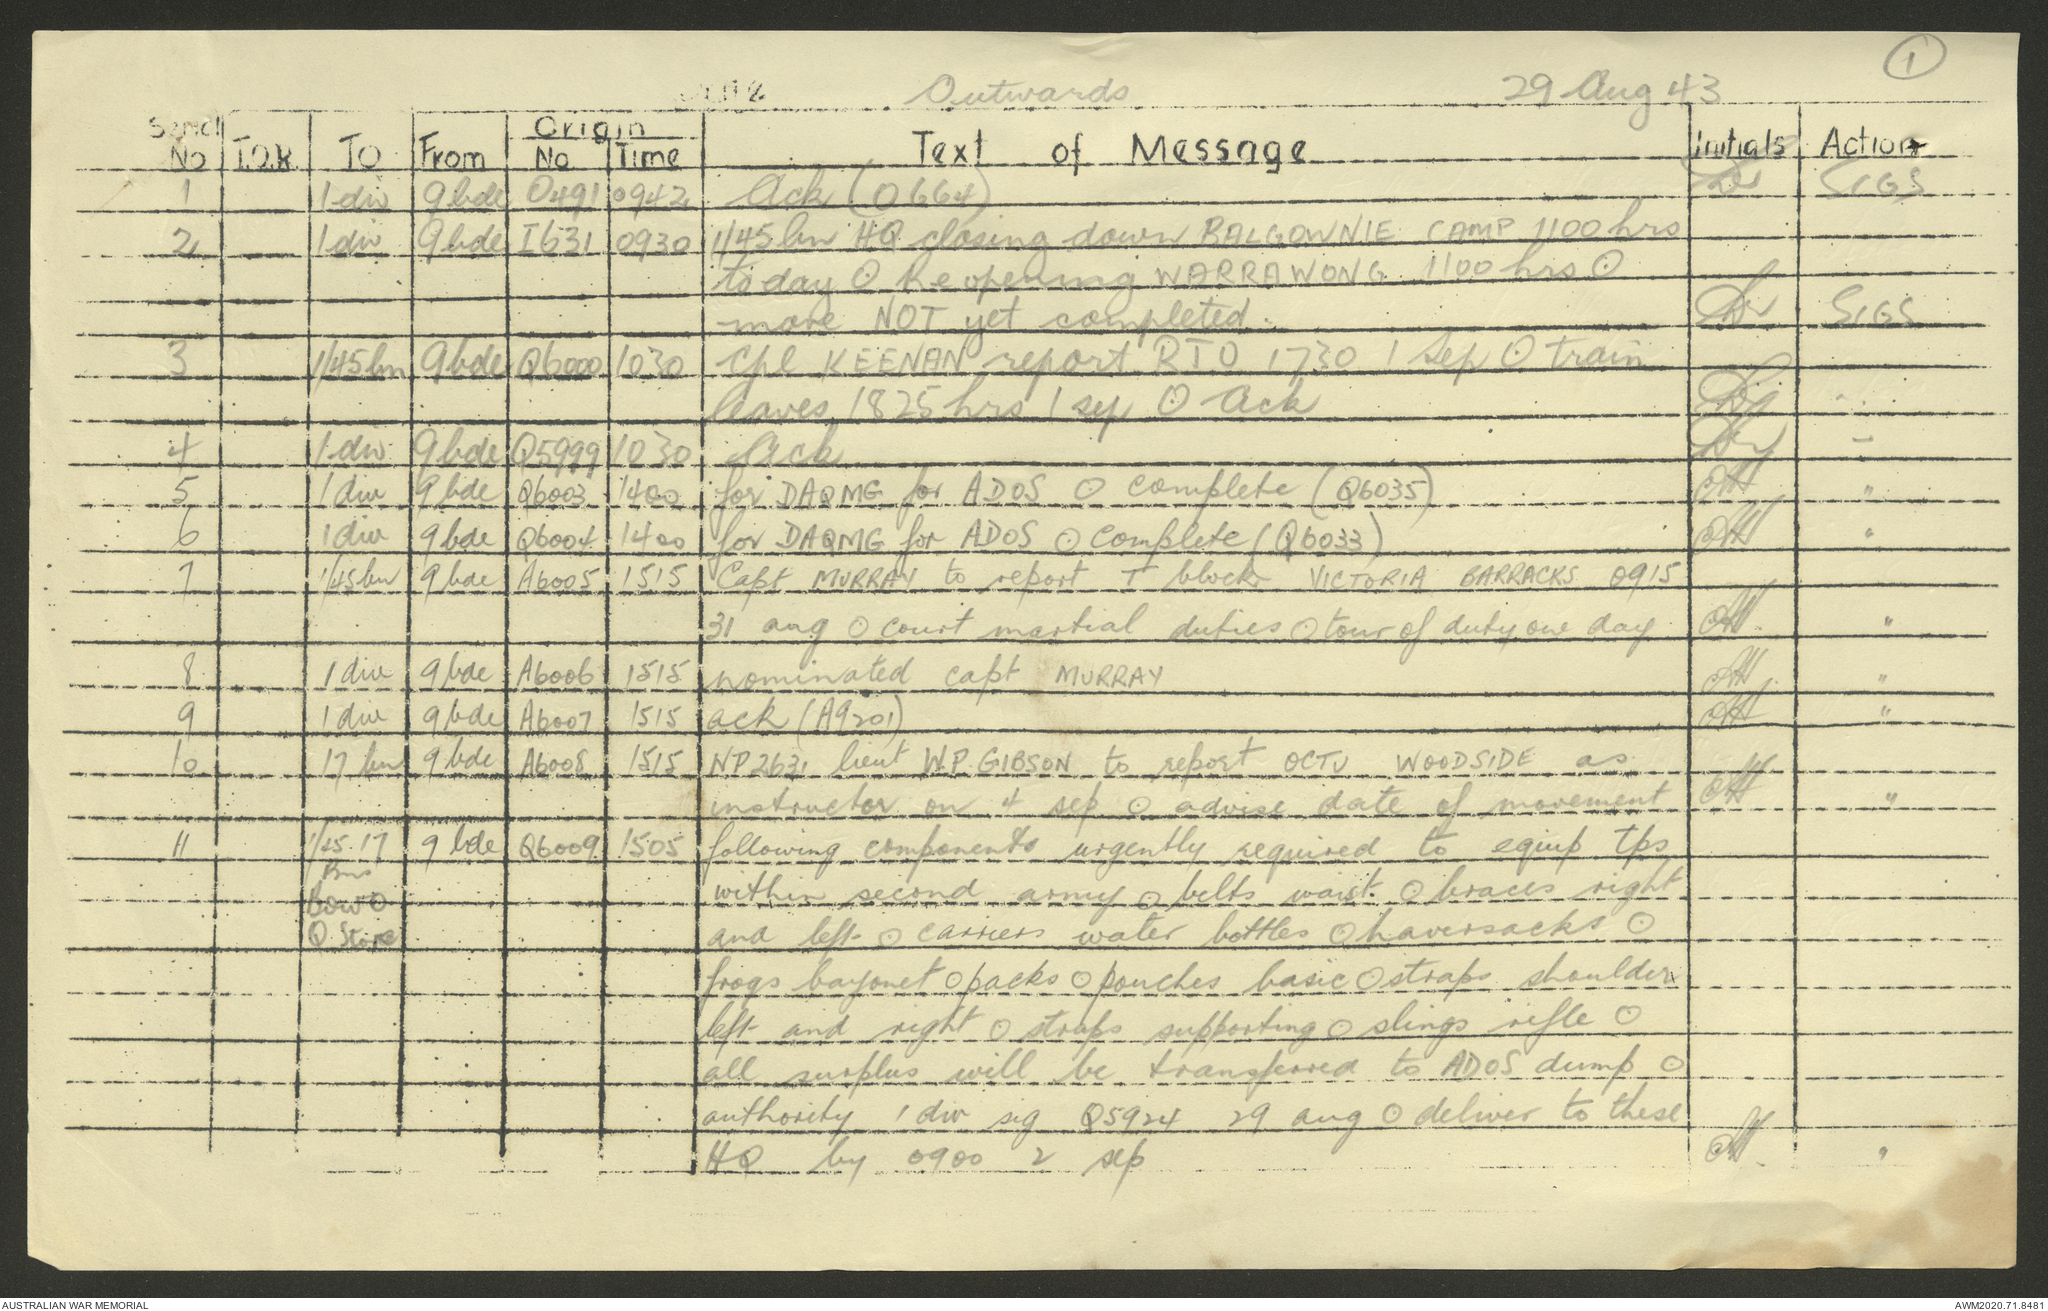 1
Outwards 29 Aug 43
Serial No T.O.R. TO From Origin No Time Text of Message Initials Action
1 1 div 9 bde O491 0942 Ack (O664) SIGS
2 1 div 9 bde I631 0930 1/45 bn HQ closing down BALGOWNIE CAMP 1100 hrs
today ⊙ Reopening WARRAWONG 1100 hrs ⊙
move NOT yet completed. SIGS
3 1/45 bn 9 bde Q6000 1030 Cpl KEENAN report RTO 1730 1 Sep ⊙ train
leaves 1825 hrs 1 sep ⊙ Ack
4 1 div 9 bde Q5999 1030 Ack
5 1 div 9 bde Q6003 1400 for DAQMG for ADOS ⊙ complete (Q6035) "
6 1 div 9 bde Q6004 1400 for DAQMG for ADOS ⊙ complete (Q6033) "
7 1/45 bn 9 bde A6005 1515 Capt MURRAY to report T block VICTORIA BARRACKS 0915
31 aug ⊙ court martial duties ⊙ tour of duty one day "
8 1 div 9 bde A6006 1515 nominated capt MURRAY "
9 1 div 9 bde A6007 1515 ack (A9201) "
10 17 bn 9 bde A6008 1515 NP2631 lieut W.P. GIBSON to report OCTU WOODSIDE as
instructor on 4 sep ⊙ advise date of movement "
11 1/45 17 9 bde Q6009 1505 following components urgently required to equip tps
Bns within second army ⊙ belts waist ⊙ braces right
Q Store and left ⊙ carriers water bottles ⊙ haversacks ⊙
frogs bayonet ⊙ packs ⊙ pouches basic ⊙ straps shoulder
left and right ⊙ straps supporting ⊙ slings rifle ⊙
all surplus will be transferred to ADOS dump ⊙
authority 1 div sig Q5924 29 aug ⊙ deliver to these
HQ by 0900 2 sep "
AUSTRALIAN WAR MEMORIAL AWM2020.71.8481